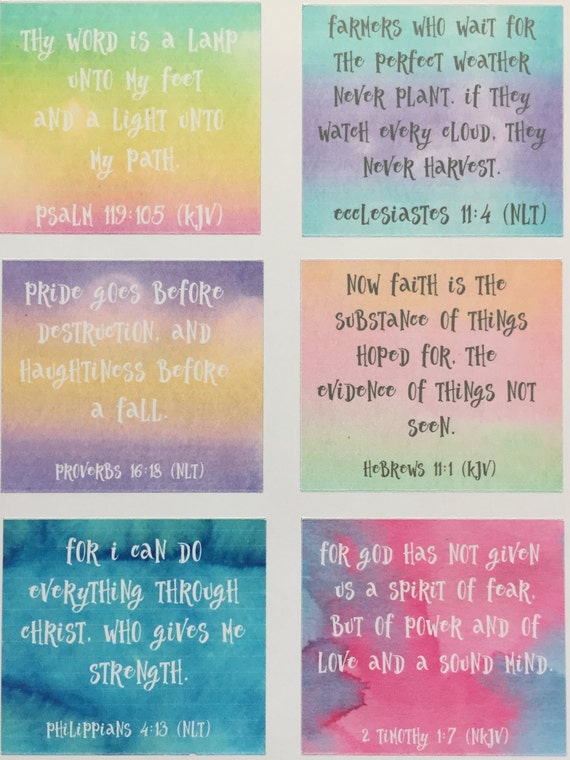 Thy word is a lamp
unto my feet
and a light unto
my path.
Psalm 119:105 (KJV)
Farmers who wait for
the perfect weather
never plant. If they
watch every cloud, they
never harvest.
Ecclesiastes 11:4 (NLT)
Pride goes before
destruction, and
haughtiness before
a fall.
Proverbs 16:18 (NLT)
Now faith is the
substance of things
hoped for, the
evidence of things not
seen.
Hebrews 11:1 (KJV)
For I can do
everything through
Christ, who gives me
strength.
Philippians 4:13 (NLT)
For God has not given
us a spirit of fear,
but of power and of
love and a sound mind.
2 Timothy 1:7 (NKJV)